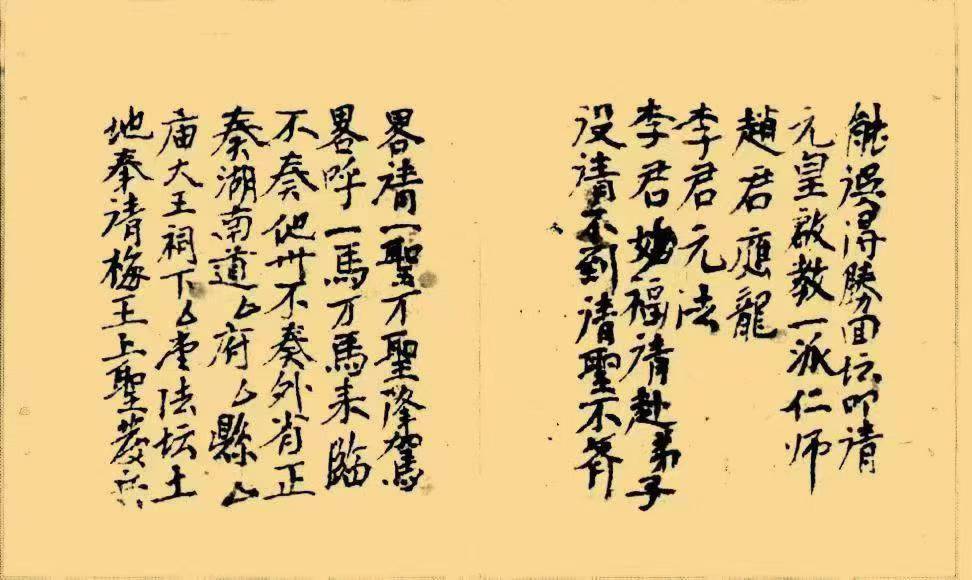 能误得勝回坛叩请
元皇啟教一派仁师
趙君應龍
李君元法
李君妙福请赴弟子
没请不到请聖不齊
畧请一聖万聖降駕
畧呼一馬万馬来臨
不奏他州不奏外省正
奏湖南道厶府厶縣厶
庙大王祠下厶堂法坛土
地奉请梅王上聖發兵